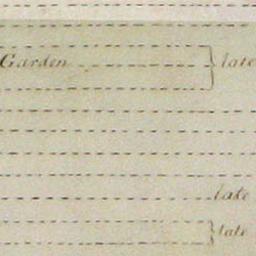 Garden late
late
late